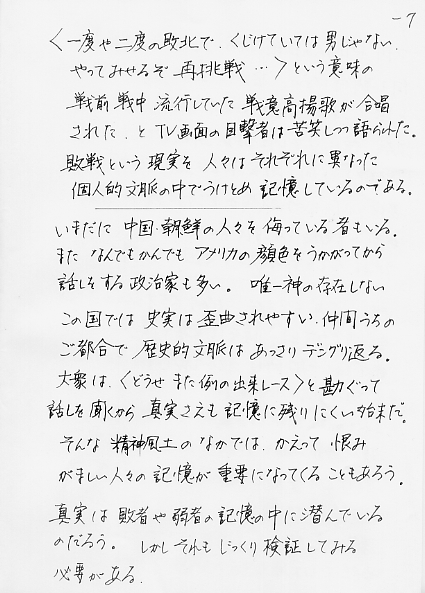 -7
〈一度や二度の敗北で、くじけていては男じゃない、
やってみせるぞ 再挑戦…〉という意味の
戦前戦中 流行していた 戦意高揚歌が合唱
された、と TV画面の目撃者は苦笑しつつ語られた。
敗戦という現実を 人々は それぞれに異なった
個人的文脈の中でうけとめ 記憶しているのである。
いまだに 中国・朝鮮の人々を侮っている者もいる。
また なんでもかんでも アメリカの顔色をうかがってから
話しをする政治家も多い。 唯一神の存在しない
この国では 史実は歪曲されやすい、仲間うちの
ご都合で 歴史的文脈は あっさり デングリ返る。
大衆は、〈どうせ また例の出来レース〉と勘ぐって
話しを聞くから 真実さえも 記憶に残りにくい始末だ。
そんな 精神風土のなかでは、かえって 恨み
がましい人々の記憶が 重要になってくることもあろう。
真実は 敗者や弱者の記憶の中に潜んでいる
のだろう。 しかしそれも じっくり検証してみる
必要がある。